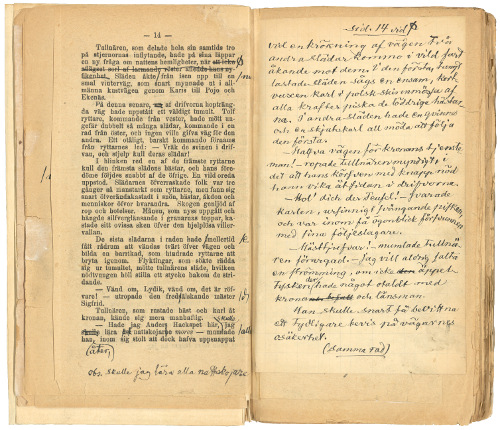 — 14 —
Tallnären, som delade hela sin samtids tro
på stjernornas inflytande, hade på sina läppar
en ny fråga om nattens hemligheter, när
Släden åkte från isen upp till en
smal vinterväg, som snart mynnade ut i all-
männa kustvägen genom Karis till Pojo och
Ekenäs.
På denna senare, af drifvorna hopträng-
da väg hade uppstått ett väldigt tumult. Tolf
ryttare, kommande från vester, hade mött un-
gefär dubbelt så många slädar, kommande i en
rad från öster, och ingen ville gifva väg för den
andra. Ett otåligt, barskt kommando förnams
från ryttarnes led: — Vräk de svinen i drif-
van, och stjelp kull deras slädar!
I blinken red en af de främste ryttarne
kull den främsta slädens häst, och hans före-
döme följdes snabbt af de öfrige. En vild oreda
uppstod. Slädarnes öfverraskade folk var tre
gånger så manstarkt som ryttarne, men fann sig
snart öfverändakastadt i snön, hästar, skodon och
menniskor öfver hvarandra. Skogen genljöd af
rop och hotelser. Månen, som nyss uppgått och
hängde silfverglänsande i granarnes toppar, ka-
stade sitt ovissa sken öfver den hjelplösa viller-
vallan.
De sista slädarna i raden hade emellertid
fått rådrum att vändas tvärt öfver vägen och
bilda en barrikad, som hindrade ryttarne att
bryta igenom. Flyktingar, som sökte rädda
sig ur tumultet, mötte tallnärens släde, hvilken
nödtvungen höll stilla ett stycke bakom de stri-
dande.
— Vänd om, Lydik, vänd om, det är röf-
vare! — utropade den fredälskande mäster
Sigfrid.
Tallnären, som rustade häst och karl åt
kronan, kände sig mera manhaftig.
— Hade jag Anders Hackspet här, jag
skulle lära nattskojarne — mumlade
han, inom sig stolt att dock hafva uppsnappat
(åter)
obs. skulle jag lära alla nattskojare
Sid. 14 vid
vid en krökning af vägen. Från
andra slädar kommo i vild fart
åkande mot dem. I den första, tungt
lastade släden sågs en ensam, kort
vuxen karl i polsk skinnmössa af
alla krafter piska de löddriga hästar
na. I andra släden hade en qvinna
och en skjutskarl all möda att följa
den första.
— Halfva vägen för kronans tjenste
man! — ropade tallnären myndigt, i
det att hans körsven med knapp nöd
hann vika åt sidan i drifvorna.
— Hol' dich der Teufel! — svarade
karlen, ursinnigt svängande piskan
och var inom få ögonblick försvunnen
med sina följeslagare.
mumlade Tallnä-
ren förargad. — Jag vill aldrig fälta
en strömming, om icke den
tysken hade något otaldt med
kronans och länsman.
Han skulle snart få bevittna
ett tydligare bevis på vägarnes
osäkerhet.
(Samma rad)